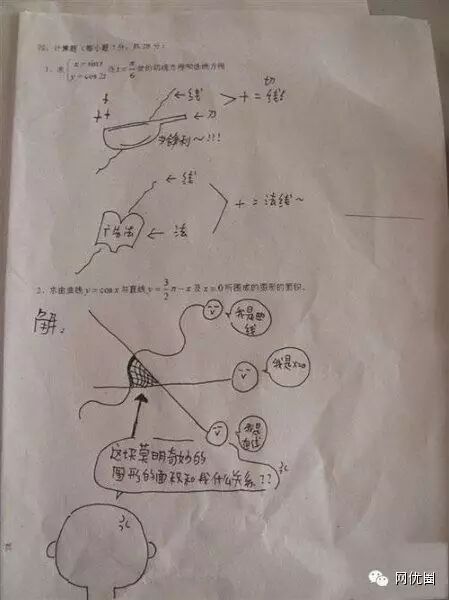 四、计算题(每小题7分,共28分)
1、求{x=sin t y=cos 2t 在t=π/6处的切线方程和法线方程
← 线
← 刀
} + = 切线!
← 线
← 法
} + = 法线~
2、求由曲线y=cos x与直线y=3/2π-x及x=0所围成的图形的面积.
解:
我是曲线
我是x=0
我是直线
这块莫明奇妙的
图形的面积和我什么关系??
网优圈